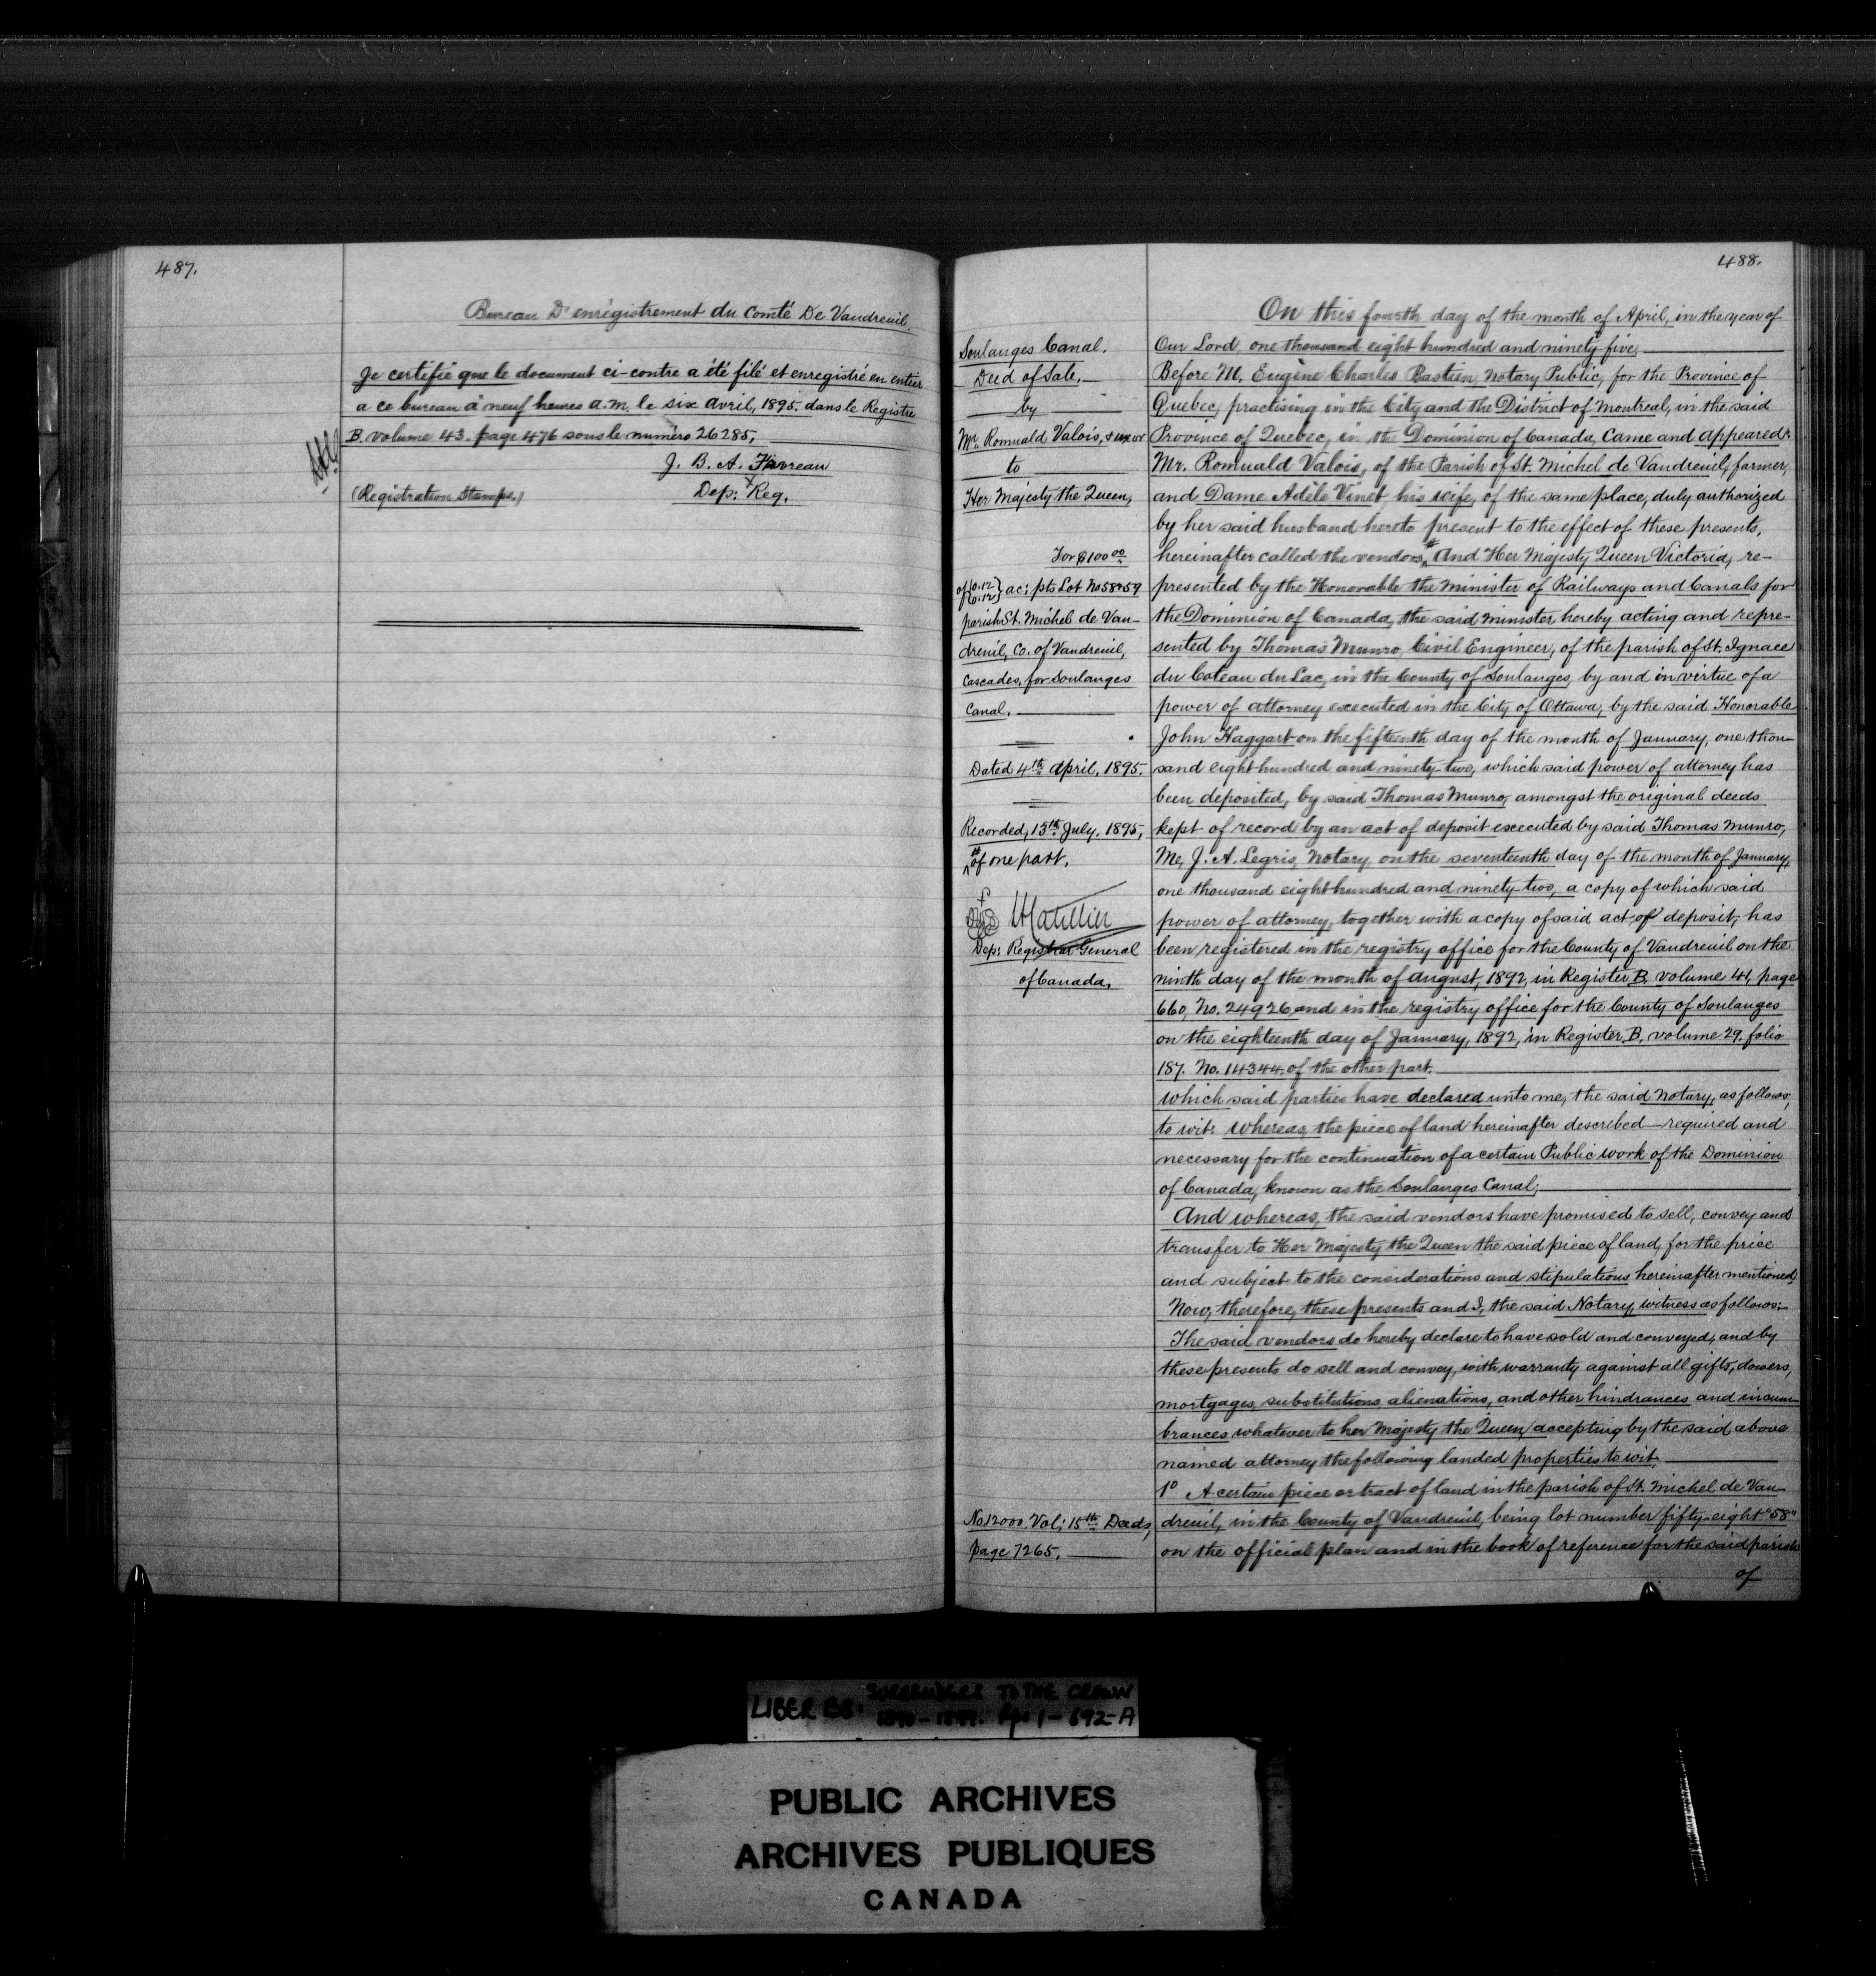 487.
Bureau D'enrégistrement du Comté De Vaudreuil.
Je certifie que le document ci-contre a été filé et enregistré en entier
a ce bureau à neuf heures a.m. le six avril, 1895. dans le Registre
B. volume 43. page 476 sous le numéro 26285,
J. B. A.
(Registration Stamps.)
Dep: Reg.
488.
Soulanges Canal.
Deed of Sale,
by
Mr. Romuald Valois, & uxor
to
Her Majesty the Queen,
For $100.00
of {0.12 0.12} ac: pts Lot No 58 & 59
parish St. Michel de Van-
dreuil, Co. of Vaudreuil,
Cascades, for Soulanges
Canal.
Dated 4th April, 1895.
Recorded, 15th July, 1895,
# of one part.
Dep: Registrar General
of Canada,
No 12000. Vol; 15th Deeds,
page 7265.
On this fourth day of the month of April, in the year of
Our Lord, one thousand eight hundred and ninety-five,
Before M. Eugène Charles Bastien, Notary Public, for the Province of
Quebec, practising in the City and the District of Montreal, in the said
Province of Quebec, in the Dominion of Canada, Came and appeared:
Mr. Romuald Valois, of the Parish of St. Michel de Vaudreuil, farmer,
and Dame Adèle Vinet his wife, of the same place, duly authorized
by her said husband hereto present to the effect of these presents,
hereinafter called the vendors, # And Her Majesty Queen Victoria, re-
presented by the Honorable the Minister of Railways and Canals for
the Dominion of Canada, the said Minister hereby acting and repre-
sented by Thomas Munro, Civil Engineer, of the parish of St. Ignace
du Coteau du Lac, in the County of Soulanges, by and in virtue of a
power of attorney executed in the City of Ottawa, by the said Honorable
John Haggart on the fifteenth day of the month of January, one thou-
sand eight hundred and ninety-two, which said power of attorney has
been deposited, by said Thomas Munro, amongst the original deeds
kept of record by an act of deposit executed by said Thomas Munro,
Me, J. A. Legris, Notary, on the seventeenth day of the month of January,
one thousand eight hundred and ninety-two, a copy of which said
power of attorney, together with a copy of said act of deposit, has
been registered in the registry office for the County of Vaudreuil on the
ninth day of the month of August, 1892, in Register B. volume 41, page
660, No. 24926 and in the registry office for the County of Soulanges
on the eighteenth day of January, 1892, in Register B. volume 29. folio
187. No. 14344. of the other part.
Which said parties have declared unto me, the said Notary, as follows,
to wit: whereas, the piece of land hereinafter described required and
necessary for the continuation of a certain Public work of the Dominion
of Canada, known as the Soulanges Canal;
And whereas, the said vendors have promised to sell, convey and
transfer to Her Majesty the Queen the said piece of land, for the price
and subject to the considerations and stipulations hereinafter mentioned,
Now, therefore, these presents and I, the said Notary, witness as follows:-
The said vendors do hereby declare to have sold and conveyed, and by
these presents do sell and convey, with warranty against all gifts, dowers,
mortgages, substitutions alienations, and other hindrances and incum-
brances whatever to her Majesty the Queen, accepting by the said above
named attorney the following landed properties to wit.
1º A certain piece or tract of land in the parish of St. Michel de Vau-
dreuil, in the County of Vaudreuil, being lot number fifty-eight "58"
on the official plan and in the book of reference for the said parish
of
LIBER BB: SURRENDERS TO THE CROWN
1890-1899. Pgs 1-692-A
PUBLIC ARCHIVES
ARCHIVES PUBLIQUES
CANADA